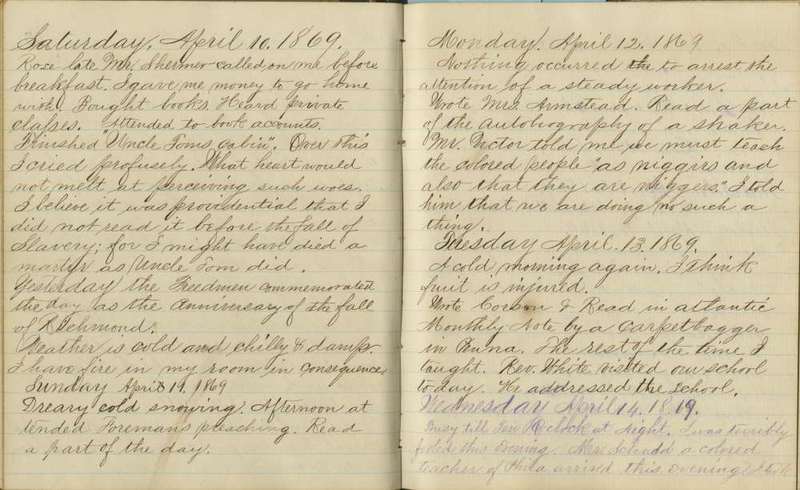 Saturday, April 10. 1869.
Rose late Mr. Shermer called on me before
breakfast. I gave me money to go home
with. Bought books. Heard private
classes. Attended to book accounts.
Finished "Uncle Toms cabin". Over this
I cried profusely. What heart would
not melt at perceiving such woes.
I believe it was providential that I
did not read it before the fall of
Slavery; for I might have died a
martyr as Uncle Tom did.
Yesterday the Freedmen commemorated
the day as the anniversary of the fall
of Richmond.
Weather is cold and chilly & damp.
I have fire in my room in consequence
Sunday April 11. 1869
Dreary cold snowing. Afternoon at
tended Foremans preaching. Read
a part of the day.
Monday. April 12. 1869
Nothing occurred the to arrest the
attention of a steady worker.
Wrote Mrs. Armstead. Read a part
of the autobiography of a shaker.
Mr. Victor told me we must teach
the colored people "as niggirs and
also that they are niggers." I told
him that we are doing no such a
thing.
Tuesday April. 13. 1869.
A cold morning again. I think
fruit is injured.
Wrote & Read in atlantic
Monthly Note by a carpetbagger
in . The rest of the time I
taught. Rev. White visited our school
to day. He addressed the school.
Wednesday April 14. 1869.
Busy till Ten O'clock at Night. I was terribly
this evening. Miss a colored
teacher of Phila arrived this evening